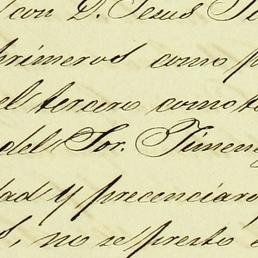 con D. Jesus
primeros como p
el tercero como t
del Sor. Jimen
dad y precenciaro
s, no se prestó